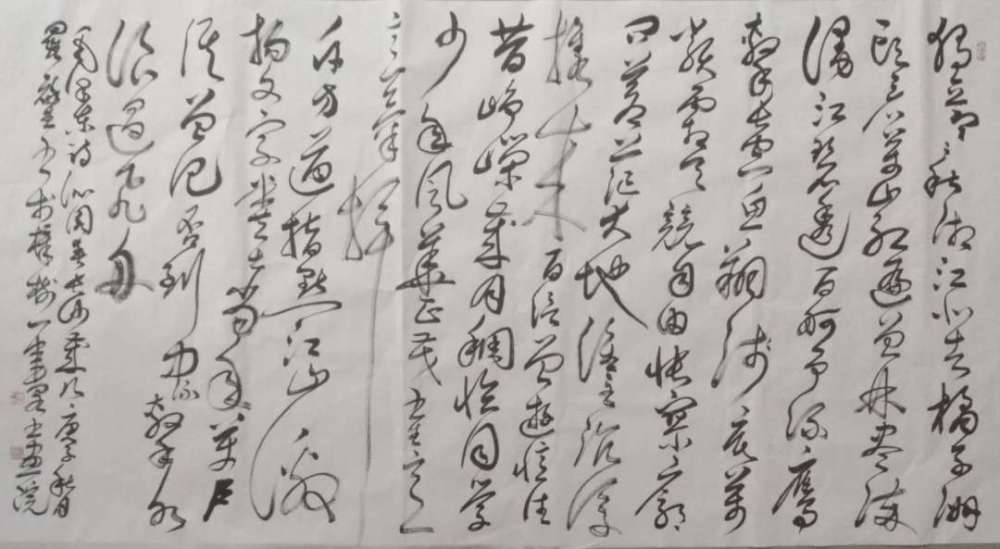 独立寒秋湘江北去橘子洲
头看万山红遍层林尽染
漫江碧透百舸争流鹰
击长空鱼翔浅底万
类霜天竞自由怅寥廓
问苍茫大地谁主沉浮
携来百侣曾游忆往
昔峥嵘岁月稠恰同学
少年风华正茂书生意
气挥
斥方遒指点江山激
扬文字粪土当年万户
侯曾记否到中流击水
浪遏飞舟
毛泽东诗沁园春长沙庚子秋月
书于书画院